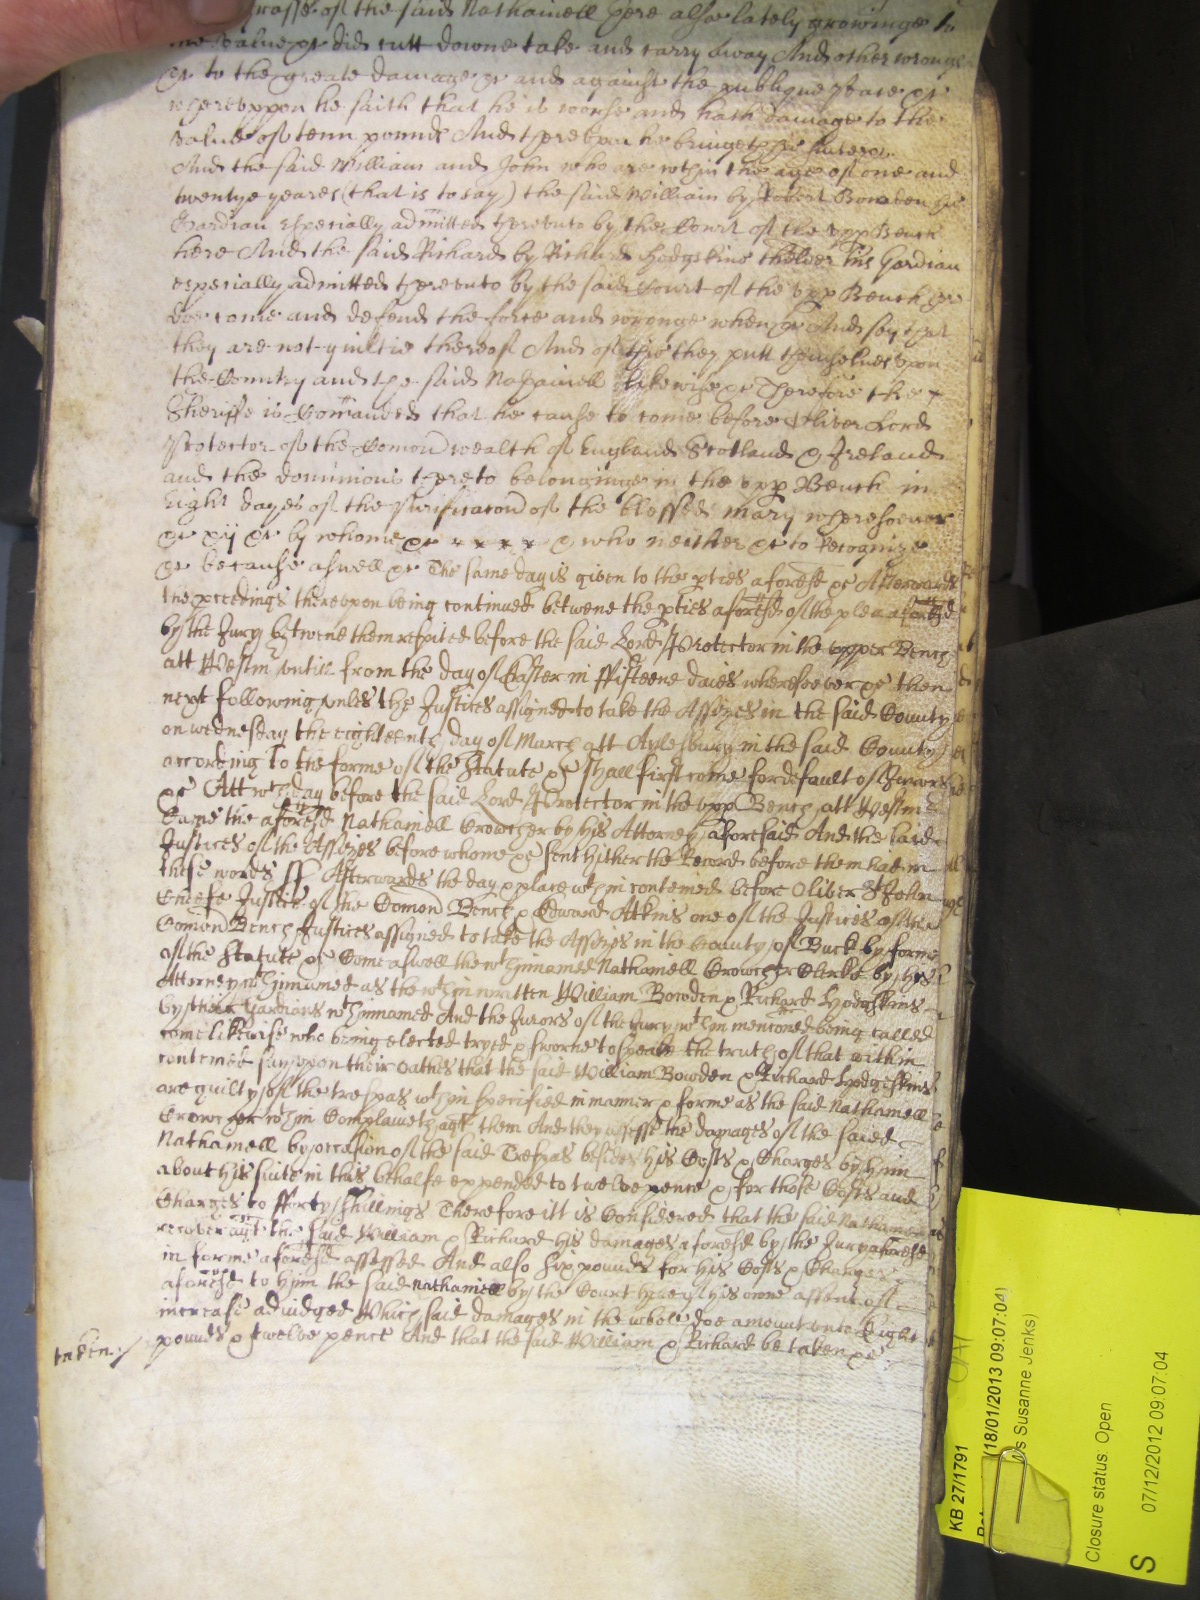 grasse of the said Nathaniell there alsoe lately growinge to
the value &c did cutt downe take and carry away And other wronge
&c to the greate damage &c and against the publique peace &c
whereuppon he saith that he is worse and hath damage to the
value of tenn pounds And thereupon he bringeth his suite &c
And the said William and John who are within the age of one and
twentye yeares (that is to say) the said William by Robert Bowden his
Gardian especially admitted thereunto by the Court of the upp Bench
here And the said Richard by Richard Hodgskins thelder his Gardian
especially admitted thereunto by the said Court of the upp Bench here
doe come and defend the force and wronge when &c And say that
they are not guiltie thereof And of this they putt themselves upon
the Country and the said Nathaniell likewise &c Therefore the
Sheriffe is Comanded that he cause to come before Oliver Lord
Protector of the Comon wealth of England Scotland & Ireland
and the dominions thereto belonginge in the upp Bench in
Eight dayes of the Purificacon of the blessed Mary wheresoever
&c xij &c by whome &c x x x x & who neither &c to Recognize
&c because aswell &c The same day is given to the pties aforesd &c Afterwards
the pceedings thereupon being continued betwene the pties aforesd of the plea aforesd
by the Jury betwene them respited before the said Lord Protector in the upper Bench
att Westm untill from the day of Easter in ffifteene daies wheresoever &c then
next following unles the Justices assigned to take the Assizes in the said County
on wednesday the eighteenth day of March att Aylesbury in the said County
according to the forme of the Statute &c shall first come for default of Jurors
&c Att wch day before the said Lord Protector in the upp Bench att Westm
Came the aforesd Nathaniell Crowcher by his Attorney aforesaid And the said
Justices of the Assizes before whome &c sent hither the Record before them had in
these words ss Afterwards the day & place wthin conteined before Oliver St John
Cheife Justice of the Comon Bench & Edward Atkins one of the Justices of the
Comon Bench Justices assigned to take the Assizes in the County of Buck by forme
of the Statute &c Come aswell the wthinnamed Nathaniell Crowcher Clerke by his
Attorney wthinnamed as the wthin written William Bowden & Richard Hodgskins
by their Gardians wthinnamed And the Jurors of the Jury wthin mentoned being called
come likewise who being elected tryed & sworne to speake the truth of that within
conteined say upon their oathes that the said William Bowden & Richard Hodgskins
are guilty of the trespas wthin specified in manner & forme as the said Nathaniell
Crowcher wthin Complaineth agt them And they assesse the damages of the said
Nathaniell by occasion of the said Trespas besides his Costs & Charges by him
about his suite in this behalfe expended to twelve pence & for those Costs and
Charges to fforty shillings Therefore itt is Considered that the said Nathaniell
recover agt the said William & Richard his damages aforesd by the Jury aforesd
in forme aforesd assessed And also six pounds for his Costs & Charges
aforesd to him the said Nathaniell by the Court here of his owne assent of
increase adiudged Which said damages in the whole doe amount unto Eight
pounds & twelve pence And that the said William & Richard be taken &c
taken
KB 27/1791
(18/01/2013 09:07:04)
s Susanne Jenks)
Closure status: Open
S
07/12/2012 09:07:04